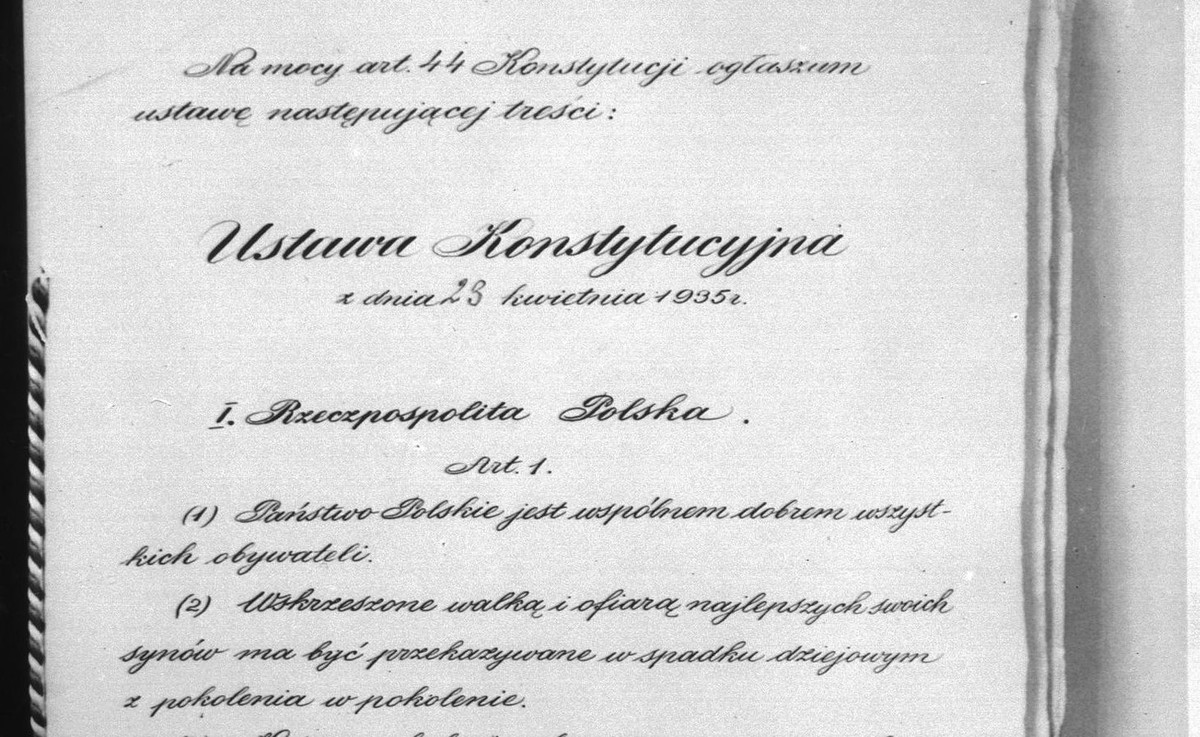 Na mocy art. 44 Konstytucji ogłaszam
ustawę następującej treści:
Ustawa Konstytucyjna
z dnia 23 kwietnia 1935 r.
I. Rzeczpospolita Polska.
Art. 1.
(1) Państwo Polskie jest wspólnem dobrem wszyst-
kich obywateli.
(2) Wskrzeszone walką i ofiarą najlepszych swoich
synów ma być przekazywane w spadku dziejowym
z pokolenia w pokolenie.